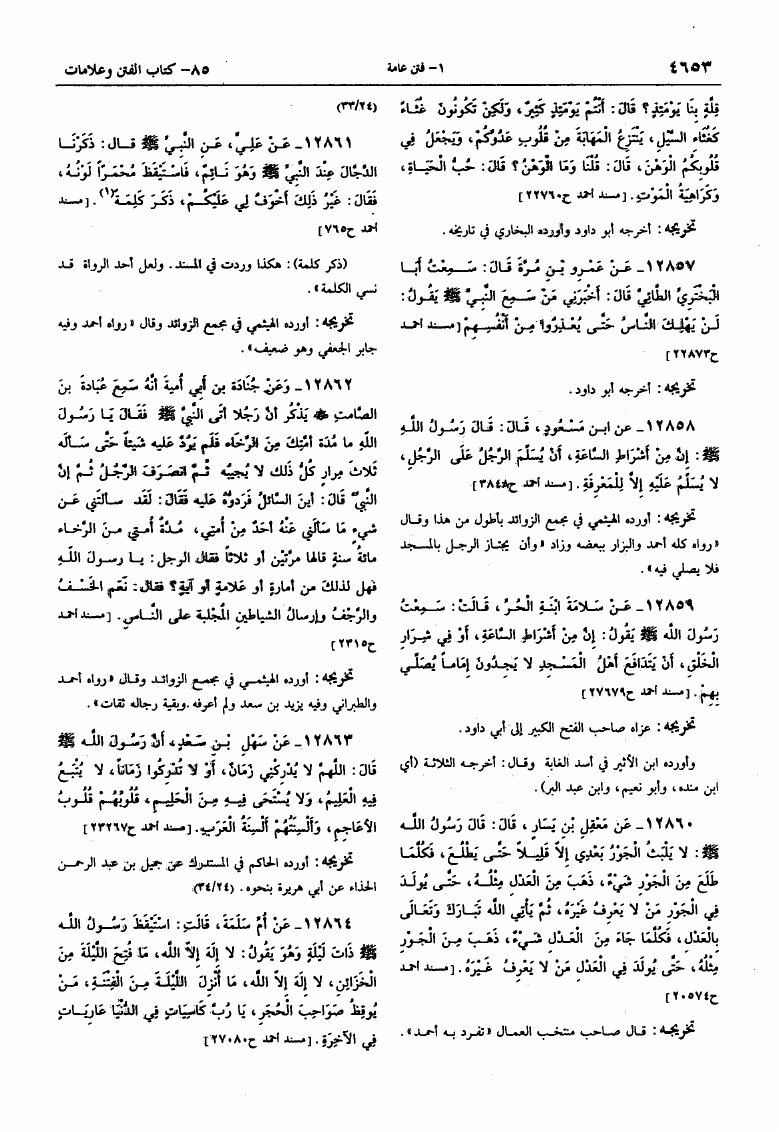 ٤٦٥٣
١- فتن عامة
٨٥- كتاب الفتن وعلامات
قِلَّةٍ بِنَا يَوْمَئِذٍ؟ قَالَ: أَنْتُمْ يَوْمَئِذٍ كَثِيرٌ، وَلَكِنْ تَكُونُونَ غُثَاءً
كَغُثَاءِ السَّيْلِ، يَنْتَزِعُ الْمَهَابَةَ مِنْ قُلُوبِ عَدُوِّكُمْ، وَيَجْعَلُ فِي
قُلُوبِكُمُ الْوَهْنَ، قَالَ: قُلْنَا وَمَا الْوَهْنُ؟ قَالَ: حُبُّ الْحَيَاةِ،
وَكَرَاهِيَةُ الْمَوْتِ. [مسند احمد ح٢٢٧٦٠]
تخريجه: أخرجه أبو داود وأورده البخاري في تاريخه.
١٢٨٥٧- عَنْ عَمْرِو بْنِ مُرَّةَ قَالَ: سَمِعْتُ أَبَا
الْبَخْتَرِيِّ الطَّائِيَّ قَالَ: أَخْبَرَنِي مَنْ سَمِعَ النَّبِيَّ ﷺ يَقُولُ:
لَنْ يَهْلِكَ النَّاسُ حَتَّى يُعْذِرُوا مِنْ أَنْفُسِهِمْ [مسند احمد
ح٢٢٨٧٣]
تخريجه: أخرجه أبو داود.
١٢٨٥٨- عن ابن مَسْعُودٍ، قَالَ: قَالَ رَسُولُ اللهِ
ﷺ: إِنَّ مِنْ أَشْرَاطِ السَّاعَةِ، أَنْ يُسَلِّمَ الرَّجُلُ عَلَى الرَّجُلِ،
لَا يُسَلِّمُ عَلَيْهِ إِلَّا لِلْمَعْرِفَةِ. [مسند احمد ح٣٨٤٨]
تخريجه: أورده الهيثمي في مجمع الزوائد بأطول من هذا وقال
«رواه كله أحمد والبزار ببعضه وزاد «وأن يجتاز الرجل بالمسجد
فلا يصلي فيه».
١٢٨٥٩- عَنْ سَلَامَةَ ابْنَةِ الْحُرِّ، قَالَتْ: سَمِعْتُ
رَسُولَ الله ﷺ يَقُولُ: إِنَّ مِنْ أَشْرَاطِ السَّاعَةِ، أَوْ فِي شِرَارِ
الْخَلْقِ، أَنْ يَتَدَافَعَ أَهْلُ الْمَسْجِدِ لَا يَجِدُونَ إِمَاماً يُصَلِّي
بِهِمْ. [مسند احمد ح٢٧٦٧٩]
تخريجه: عزاه صاحب الفتح الكبير إلى أبي داود.
وأورده ابن الأثير في أسد الغابة وقال: أخرجه الثلاثة (أي
ابن منده، وأبو نعيم، وابن عبد البر).
١٢٨٦٠- عن مَعْقِلِ بْنِ يَسَارٍ، قَالَ: قَالَ رَسُولُ اللهِ
ﷺ: لَا يَلْبَثُ الْجَوْرُ بَعْدِي إِلَّا قَلِيلاً حَتَّى يَطْلُعَ، فَكُلَّمَا
طَلَعَ مِنَ الْجَوْرِ شَيْءٌ، ذَهَبَ مِنَ الْعَدْلِ مِثْلُهُ، حَتَّى يُولَدَ
فِي الْجَوْرِ مَنْ لَا يَعْرِفُ غَيْرَهُ، ثُمَّ يَأْتِي الله تَبَارَكَ وَتَعَالَى
بِالْعَدْلِ، فَكُلَّمَا جَاءَ مِنَ الْعَدْلِ شَيْءٌ، ذَهَبَ مِنَ الْجَوْرِ
مِثْلُهُ، حَتَّى يُولَدَ فِي الْعَدْلِ مَنْ لَا يَعْرِفُ غَيْرَهُ. [مسند احمد
ح٢٠٥٧٤]
تخريجه: قال صاحب منتخب العمال «تفرد به أحمد».
(٣٣/٢٤)
١٢٨٦١- عَنْ عَلِيٍّ، عَنِ النَّبِيِّ ﷺ قال: ذَكَرْنَا
الدَّجَّالَ عِنْدَ النَّبِيِّ ﷺ وَهُوَ نَائِمٌ، فَاسْتَيْقَظَ مُحْمَرّاً لَوْنُهُ،
فَقَالَ: غَيْرُ ذَلِكَ أَخْوَفُ لِي عَلَيْكُمْ، ذَكَرَ كَلِمَةً(١). [مسند
احمد ح٧٦٥]
(ذكر كلمة): هكذا وردت في المسند. ولعل أحد الرواة قد
نسي الكلمة».
تخريجه: أورده الهيثمي في مجمع الزوائد وقال «رواه أحمد وفيه
جابر الجعفي وهو ضعيف».
١٢٨٦٢- وَعَنْ جُنَادَةَ بن أبي أميةَ أنَّهُ سَمِعَ عُبَادةَ بنَ
الصَّامتِ ﷺ يَذْكُر أنَّ رَجُلا أتى النَّبيَّ ﷺ فَقَالَ يَا رَسُولَ
اللهِ ما مُدَة أمَّتِكَ مِنَ الرَّخَاءِ فَلَم يَرُدَّ عليه شيئاً حَتَّى سَألَه
ثَلاثَ مِرارٍ كُلُّ ذلك لا يُجيبُه ثُمَّ انصَرَفَ الرَّجُلُ ثُمَّ إنَّ
النبيَّ قَالَ: أينَ السَّائلُ فَرَدُّوهُ عليه فَقَالَ: لَقَد سألتَني عَن
شيءٍ مَا سَألَني عَنْهُ أحَدٌ مِنْ أمتِي، مُدَّةُ أمتي منَ الرَّخاءِ
مائةُ سنةٍ قالها مرَّتَين أو ثلاثاً فقال الرجل: يا رسولَ اللهِ
فهل لذلكَ من أمارةٍ أو عَلامةٍ أو آيةٍ؟ فقال: نَعَم الخَسْفُ
والرَّجْفُ وإرسالُ الشياطين المُجْلِبة على النَّاسِ. [مسند احمد
ح٢٣١٥]
تخريجه: أورده الهيثمي في مجمع الزوائد وقال «رواه أحمد
والطبراني وفيه يزيد بن سعد ولم أعرفه .وبقية رجاله ثقات».
١٢٨٦٣- عَنْ سَهْلِ بْنِ سَعْدٍ، أَنَّ رَسُولَ اللهِ ﷺ
قَالَ: اللهُمَّ لَا يُدْرِكْنِي زَمَانٌ، أَوْ لَا تُدْرِكُوا زَمَاناً، لَا يُتْبَعُ
فِيهِ الْعَلِيمُ، وَلَا يُسْتَحَى فِيهِ مِنَ الْحَلِيمِ، قُلُوبُهُمْ قُلُوبُ
الْأَعَاجِمِ، وَأَلْسِنَتُهُمْ أَلْسِنَةُ الْعَرَبِ. [مسند احمد ح٢٣٢٦٧]
تخريجه: أورده الحاكم في المستدرك عن جميل بن عبد الرحمن
الحذاء عن أبي هريرة بنحوه. (٣٤/٢٤)
١٢٨٦٤- عَنْ أُمِّ سَلَمَةَ، قَالَتِ: اسْتَيْقَظَ رَسُولُ الله
ﷺ ذَاتَ لَيْلَةٍ وَهُوَ يَقُولُ: لَا إِلَهَ إِلَّا الله، مَا فُتِحَ اللَّيْلَةَ مِنَ
الْخَزَائِنِ، لَا إِلَهَ إِلَّا الله، مَا أُنْزِلَ اللَّيْلَةَ مِنَ الْفِتْنَةِ، مَنْ
يُوقِظُ صَوَاحِبَ الْحُجَرِ، يَا رُبَّ كَاسِيَاتٍ فِي الدُّنْيَا عَارِيَاتٍ
فِي الْآخِرَةِ. [مسند احمد ح٢٧٠٨٠]